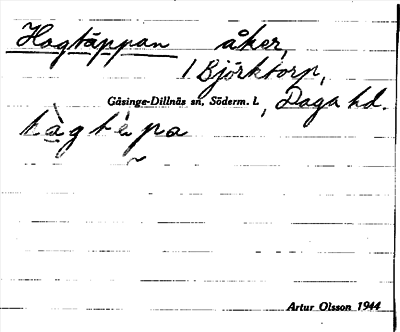 Hagtäppan åker,
1 Björktorp,
Gåsinge-Dillnäs sn, Söderm. l., Daga hd.
Artur Olsson 1944